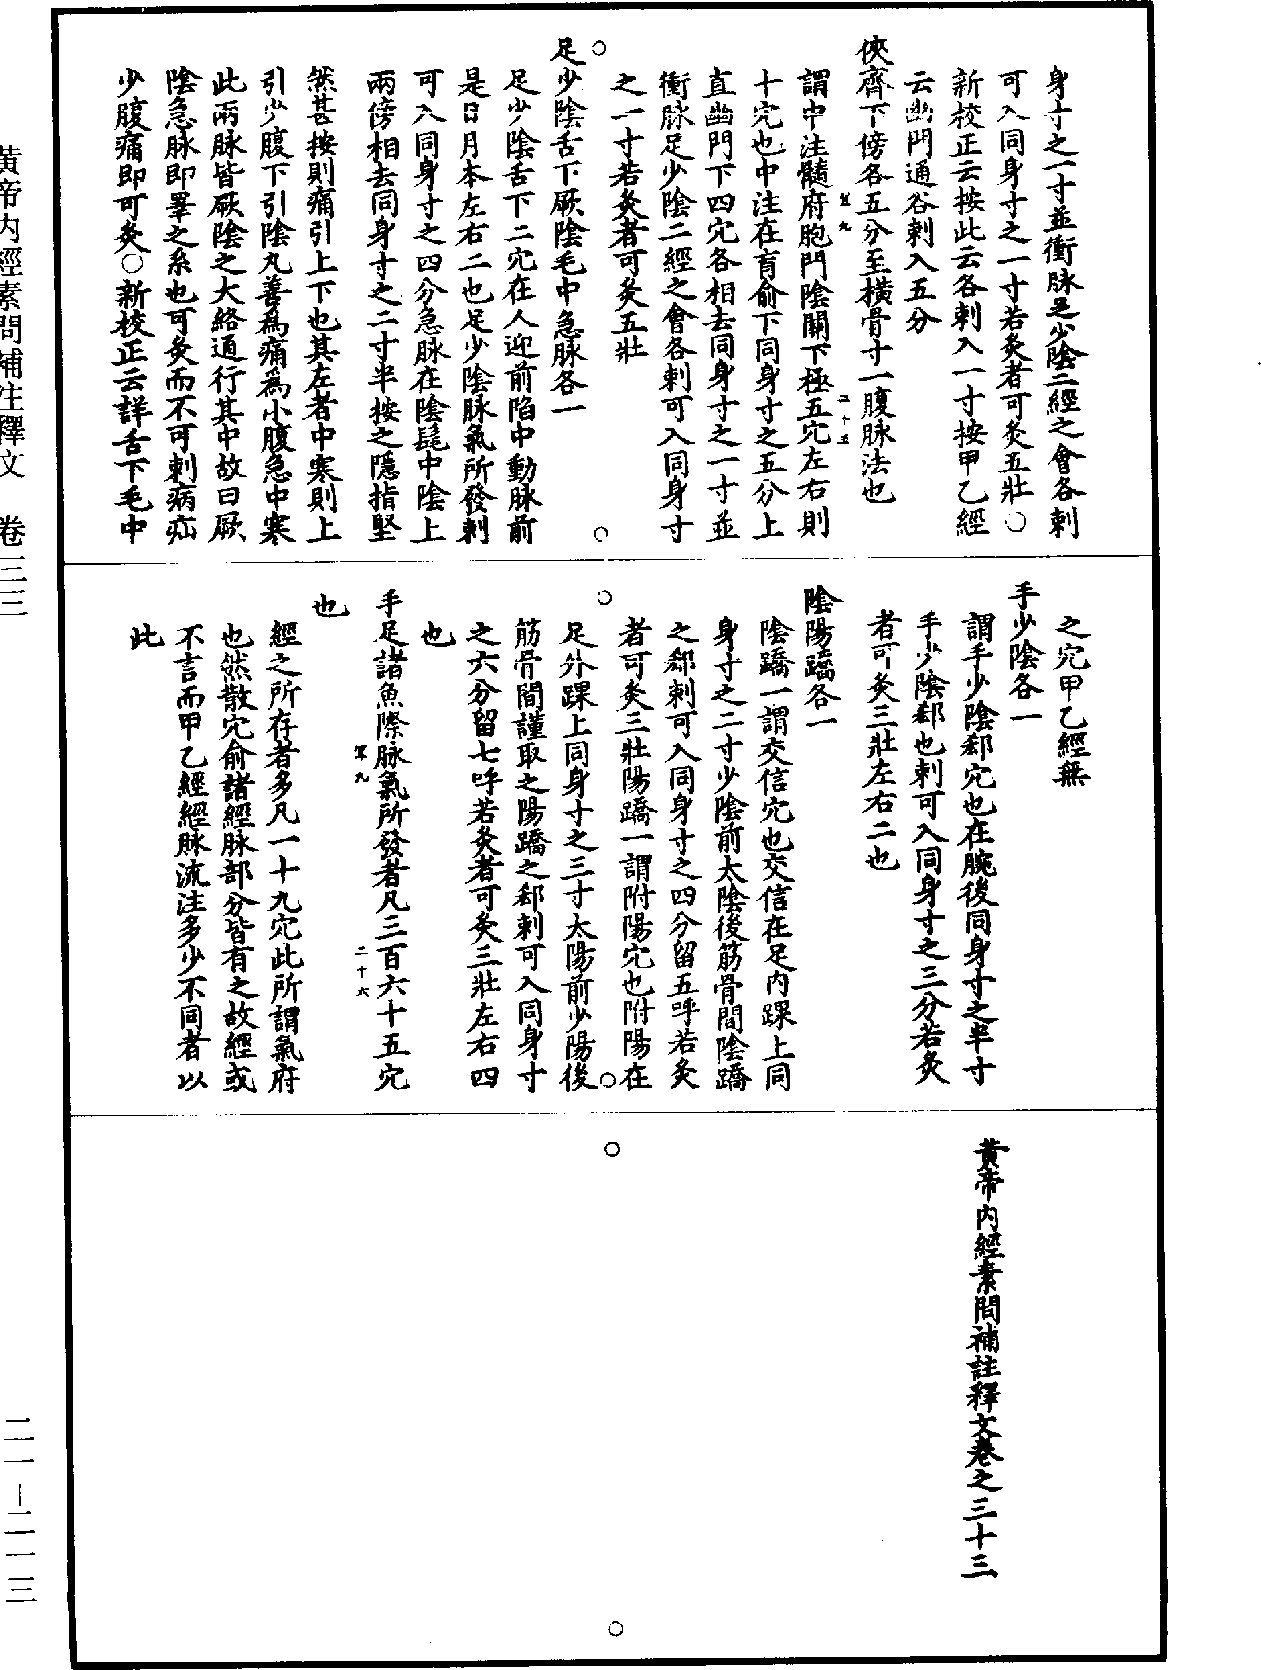 身寸之一寸並衝脉足少陰二經之會各刺
可入同身寸之一寸若灸者可灸五壯○
新校正云按此云各刺入一寸按甲乙經
云幽門通谷刺入五分
俠齊下傍各五分至橫骨寸一腹脉法也
謂中注髓府胞門陰關下極五穴左右則
十穴也中注在肓俞下同身寸之五分上
直幽門下四穴各相去同身寸之一寸並
衝脉足少陰二經之會各刺可入同身寸
之一寸若灸者可灸五壯
足少陰舌下厥陰毛中急脉各一
足少陰舌下二穴在人迎前陷中動脉前
是日月本左右二也足少陰脉氣所發刺
可入同身寸之四分急脉在陰髦中陰上
兩傍相去同身寸之二寸半按之隱指堅
然甚按則痛引上下也其左者中寒則上
引少腹下引陰丸善爲痛爲小腹急中寒
此兩脉皆厥陰之大絡通行其中故曰厥
陰急脉即睾之系也可灸而不可刺病疝
少腹痛即可灸○新校正云詳舌下毛中
之穴甲乙經無
手少陰各一
謂手少陰郄穴也在腕後同身寸之半寸
手少陰郄也刺可入同身寸之三分若灸
者可灸三壯左右二也
陰陽蹻各一
陰蹻一謂交信穴也交信在足內踝上同
身寸之二寸少陰前太陰後筋骨間陰蹻
之郄刺可入同身寸之四分留五呼若灸
者可灸三壯陽蹻一謂附陽穴也附陽在
足外踝上同身寸之三寸太陽前少陽後
筋骨間謹取之陽蹻之郄刺可入同身寸
之六分留七呼若灸者可灸三壯左右四
也
手足諸魚際脉氣所發者凡三百六十五穴
也
經之所存者多凡一十九穴此所謂氣府
也然散穴俞諸經脉部分皆有之故經或
不言而甲乙經經脉流注多少不同者以
此
黃帝內經素問補註釋文卷之三十三
二十五
二十六
黃帝內經素問補注釋文 卷三三
二一—二一三